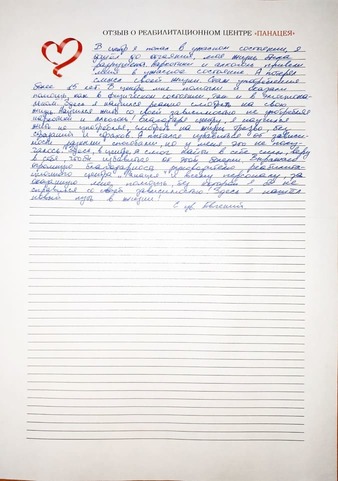 ОТЗЫВ О РЕАБИЛИТАЦИОННОМ ЦЕНТРЕ «ПАНАЦЕЯ»
В центр я попал в ужасном состоянии, я
дошел до отчаяния, моя жизнь была
разрушена. Наркотики и алкоголь привели
меня в ужасное состояние. Я потерял
смысл своей жизни. Стаж употребления
более 15 лет. В центре мне помогли и оказали
помощь, как в физическом состоянии, так и в
Здесь я научился реально смотреть на свою
жизнь. Научился жить со своей зависимостью не употребляя
наркотики и алкоголь! Благодаря центру, я научился
жить не употребляя, смотреть на жизнь трезво, без
страхов. Я пытался справиться от зависи-
мости разными способами, но у меня это не полу-
чалось. Здесь, в центре я смог найти в себе силы, веру
в себя, чтобы избавиться от этой болезни. Выражаю
огромную благодарность руководителю реабилита-
ционного центра "Панацея" и всему персоналу, за
оказанную мне помощь, без которой я бы не
справился со своей зависимостью. Здесь я нашел
новый путь в жизни!
С ув. Евгений